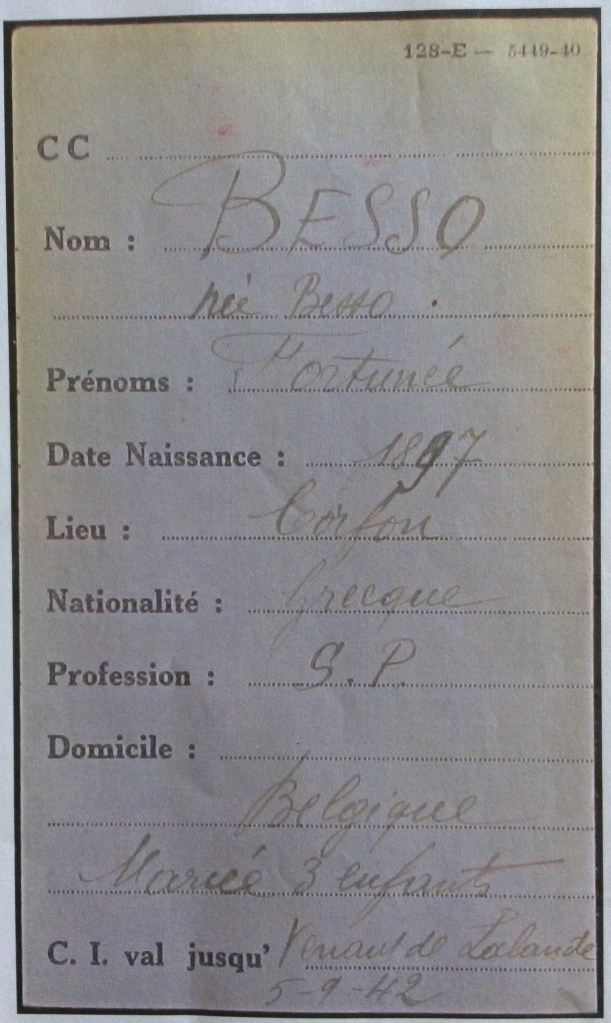 128-E — 5449-40
CC
Nom : BESSO
née Besso
Prénoms : Fortunée
Date Naissance : 1897
Lieu : Corfou
Nationalité : Grecque
Profession : S. P.
Domicile :
Belgique
Mariée 3 enfants
C. I. val jusqu' Venant de Lalande
5-9-42